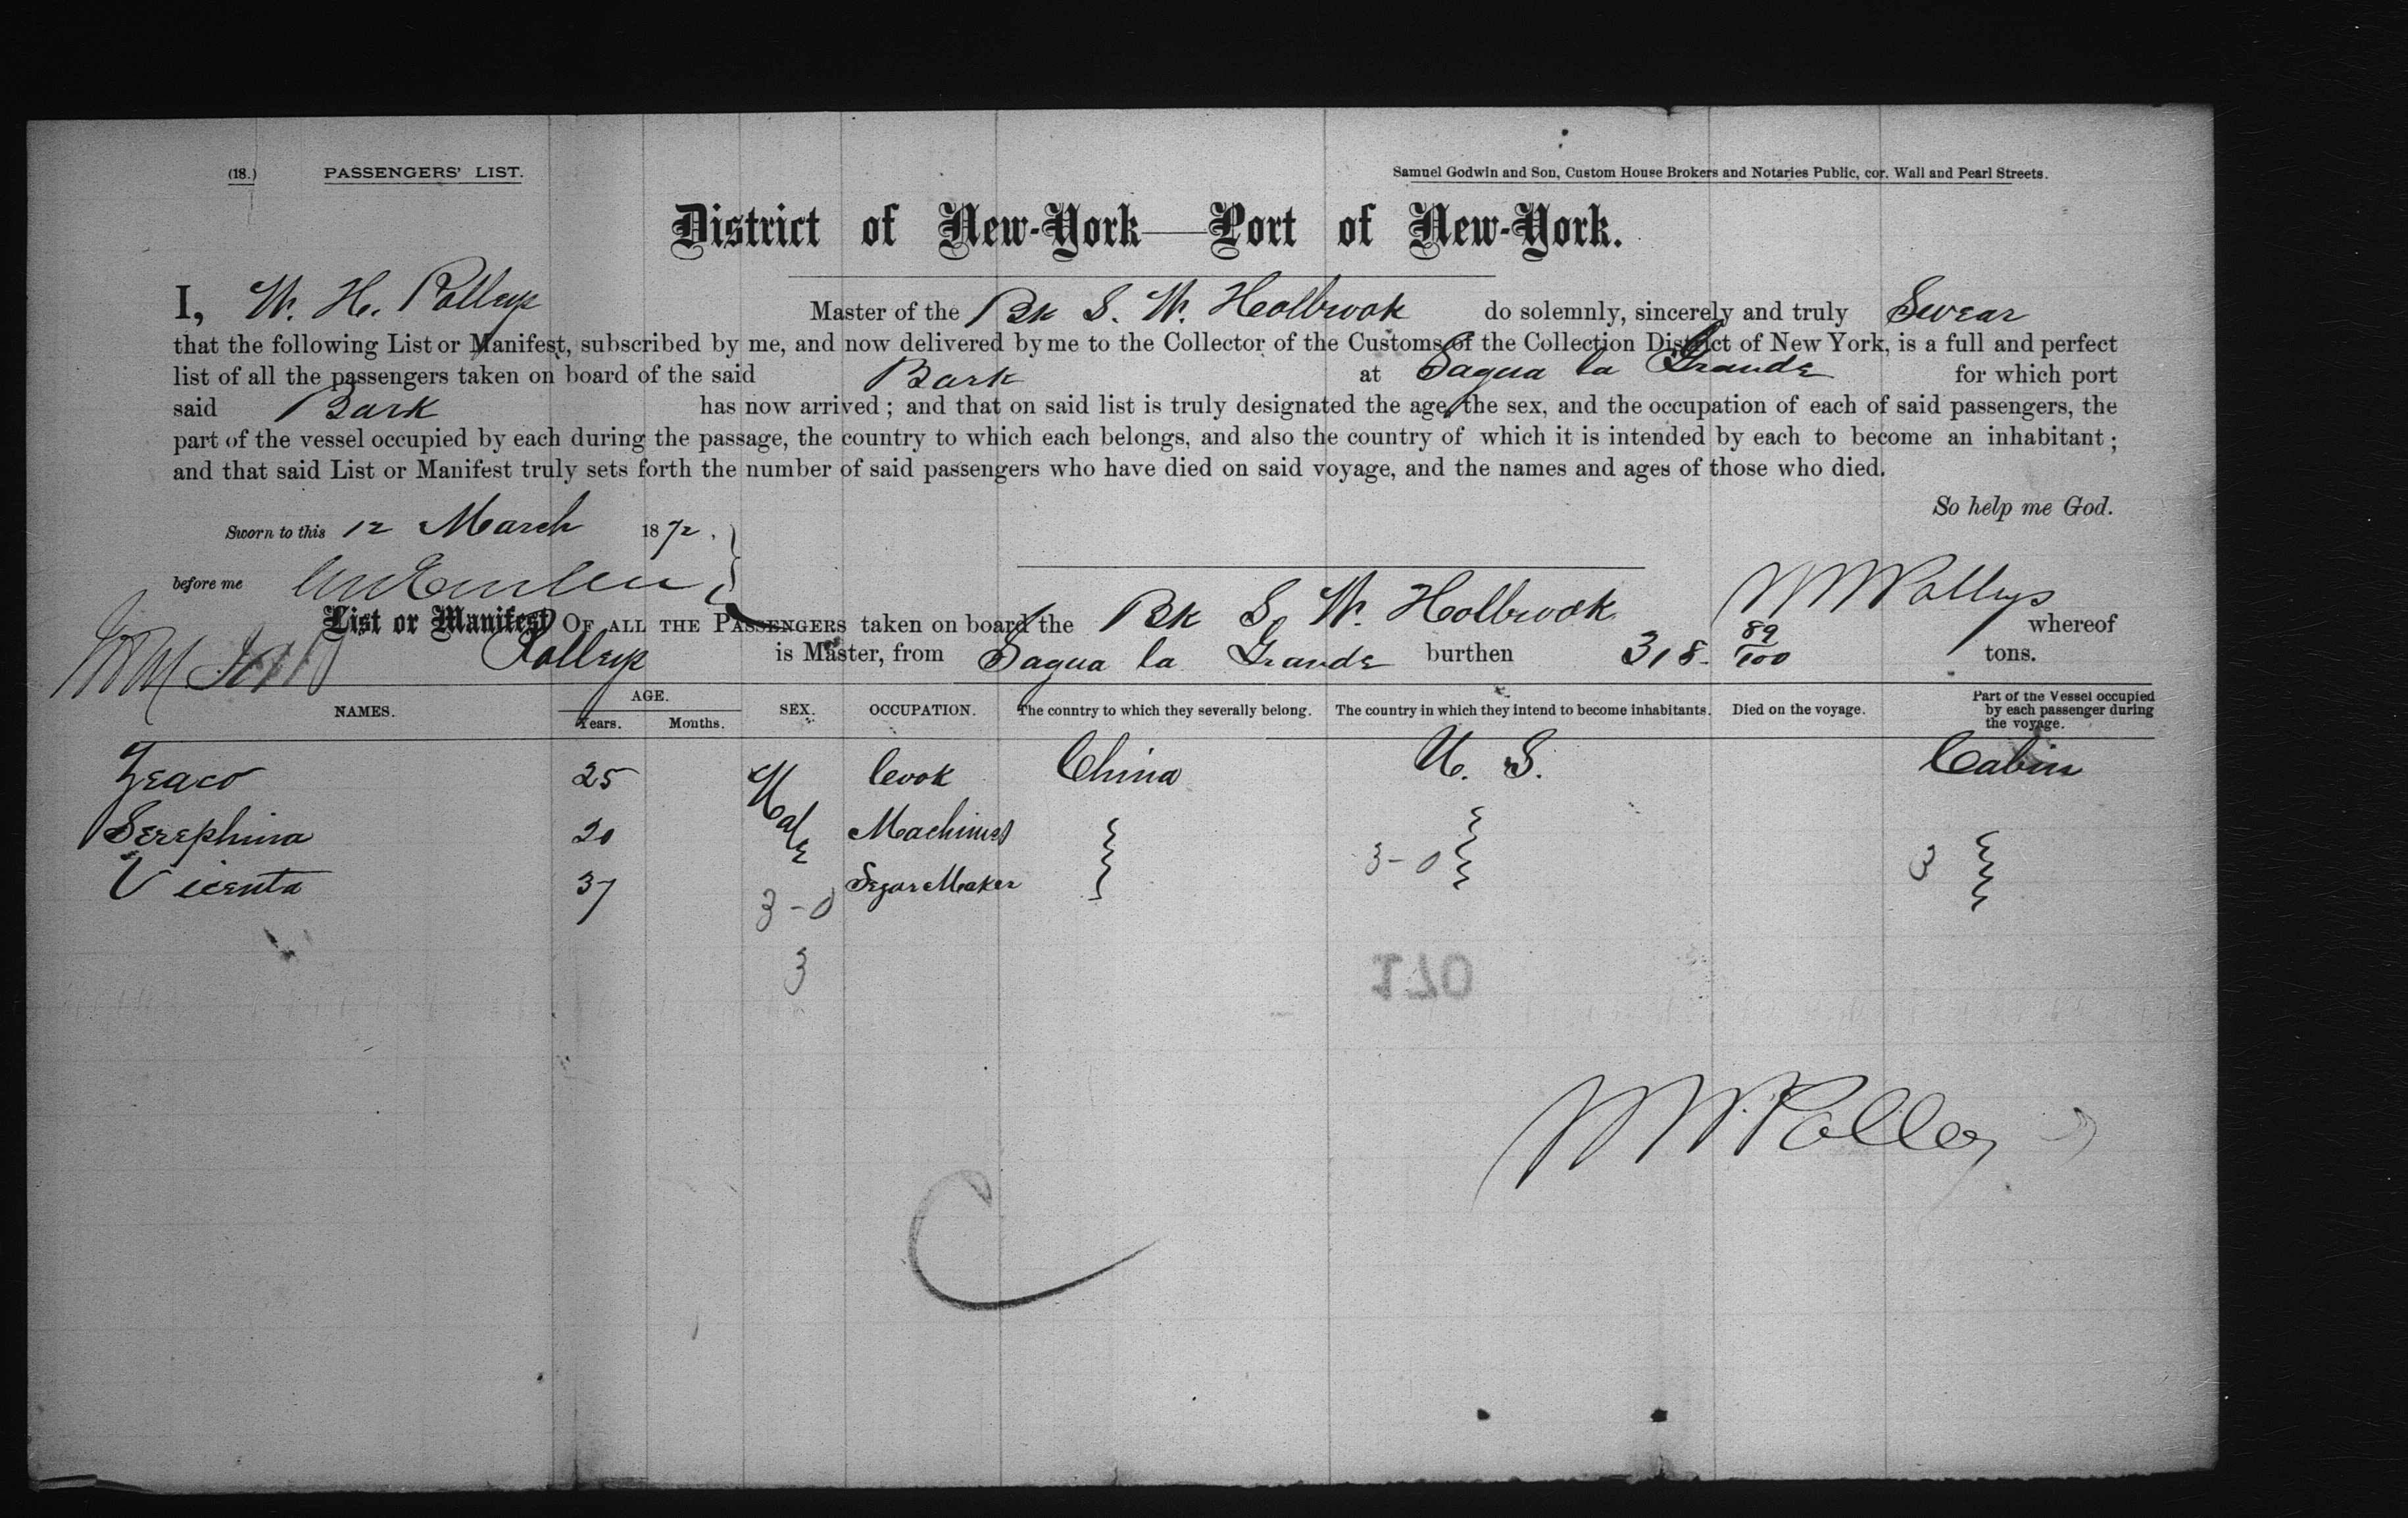 (18.) PASSENGERS' LIST. Samuel Godwin and Son, Custom House Brokers and Notaries Public, cor. Wall and Pearl Streets.
District of New-York—Port of New-York.
I, W. H. Polleys Master of the Bk S. W. Holbrook do solemnly, sincerely and truly Swear
that the following List or Manifest, subscribed by me, and now delivered by me to the Collector of the Customs of the Collection District of New York, is a full and perfect
list of all the passengers taken on board of the said Bark at Sagua la Grande for which port
said Bark has now arrived; and that on said list is truly designated the age, the sex, and the occupation of each of said passengers, the
part of the vessel occupied by each during the passage, the country to which each belongs, and also the country of which it is intended by each to become an inhabitant;
and that said List or Manifest truly sets forth the number of said passengers who have died on said voyage, and the names and ages of those who died.
So help me God.
Sworn to this 12 March 1872.
before me
W H Polleys
List or Manifest OF ALL THE PASSENGERS taken on board the Bk S. W. Holbrook whereof
Polleys is Master, from Sagua la Grande burthen 318 89/100 tons.
NAMES. AGE. Years. Months. SEX. OCCUPATION. The country to which they severally belong. The country in which they intend to become inhabitants. Died on the voyage. Part of the Vessel occupied by each passenger during the voyage.
Zeaco 25 Male Cook China U. S. Cabin
Serephina 20 Machinist
Vicenta 37 Segar Maker
3-0 3-0 3
3
170
W H Polleys
C